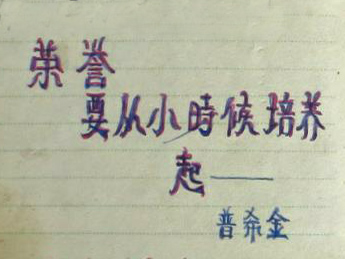 荣誉
要从小時候培养
起——
普希金